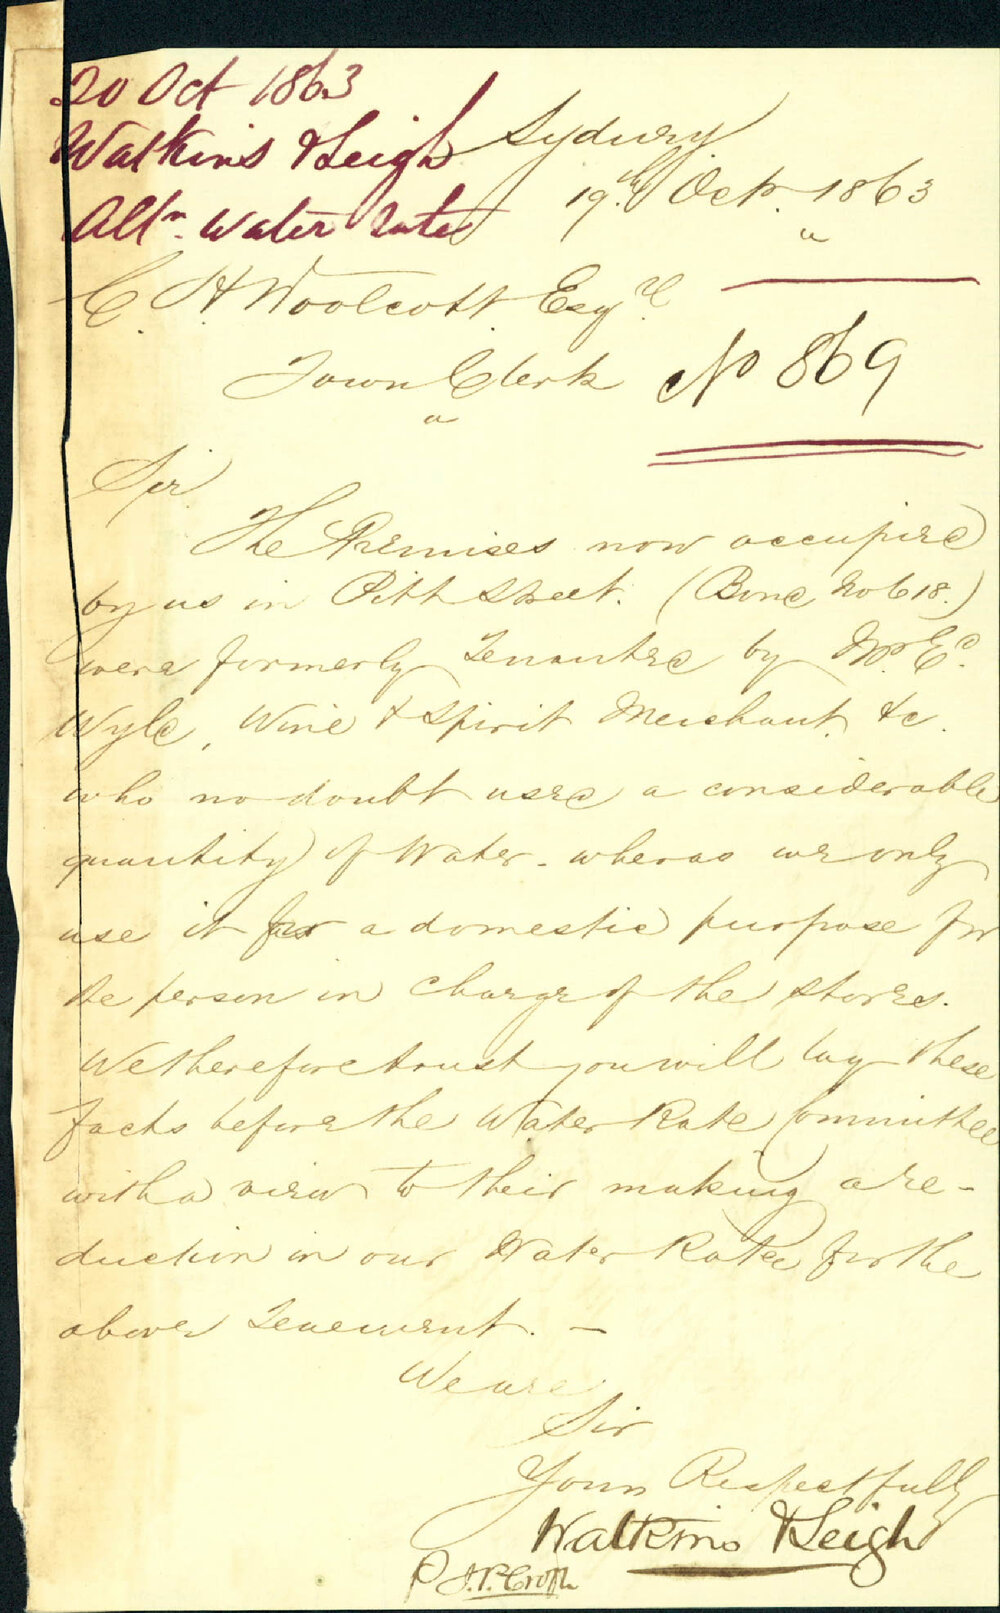 20 Oct 1863
Watkins & Leigh
Alt<sup>n</sup>. Water Rates
Sydney
19th Octr. 1863
C. H Woolcott Esqre.
Town Clerk
No 869
Sir
The Premises now occupied
by us in Pitt Street. (Bond No 618.)
were formerly Tenanted by Mr Ed.
Wyld, Wine & Spirit Merchant. &c.
who no doubt used a considerable
quantity of Water. wheras we only
use it for a domestic purpose for
the person in charge of the stores.
We therefore trust you will lay these
facts before the Water Rate Committee
with a view to their making a re-
duction in our Water Rates for the
above Tenement. —
We are
Sir
Yours Respectfully
Watkins & Leigh
P J.P. Croft